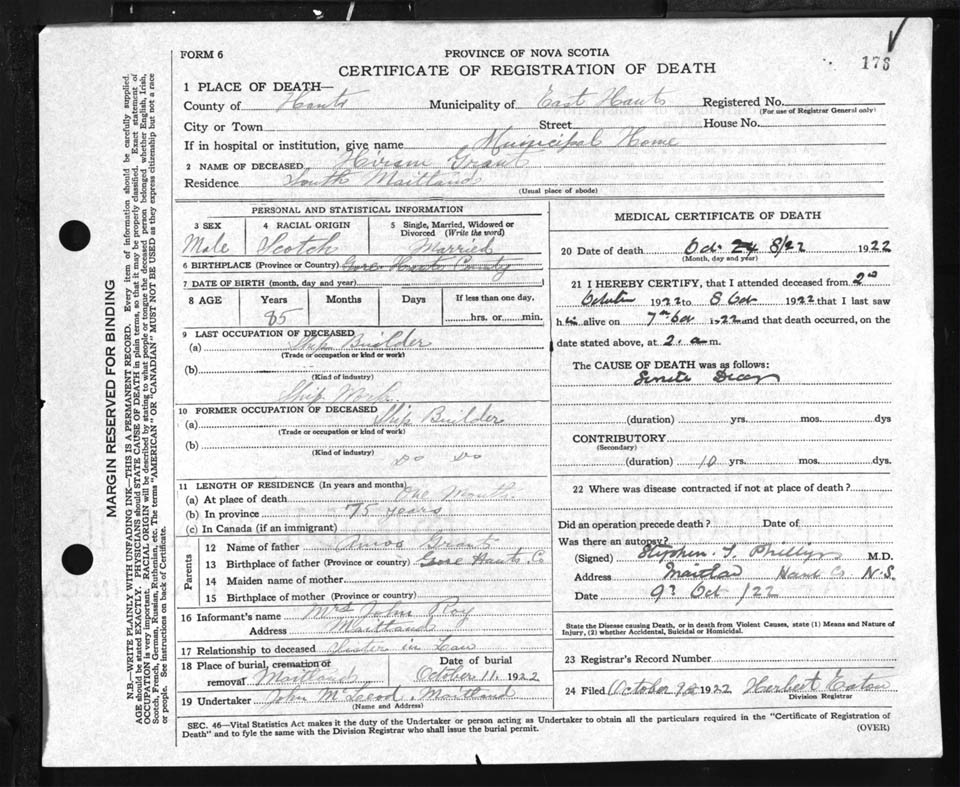 FORM 6
PROVINCE OF NOVA SCOTIA
CERTIFICATE OF REGISTRATION OF DEATH
176
1 PLACE OF DEATH—
County of Hants Municipality of East Hants Registered No.
(For use of Registrar General only)
City or Town Street House No.
If in hospital or institution, give name Municipal Home
2 NAME OF DECEASED Hiram Grant
Residence South Maitland
(Usual place of abode)
PERSONAL AND STATISTICAL INFORMATION
3 SEX 4 RACIAL ORIGIN 5 Single, Married, Widowed or Divorced (Write the word)
Male Scotch Married
6 BIRTHPLACE (Province or Country) Gore Hants County
7 DATE OF BIRTH (month, day and year)
8 AGE Years Months Days If less than one day,
85 hrs. or min.
9 LAST OCCUPATION OF DECEASED
(a) Ship Builder
(Trade or occupation or kind of work)
(b)
(Kind of industry)
Ship Work
10 FORMER OCCUPATION OF DECEASED
(a) Ship Builder
(Trade or occupation or kind of work)
(b)
(Kind of industry)
do do
11 LENGTH OF RESIDENCE (In years and months)
(a) At place of death One Month
(b) In province 75 years
(c) In Canada (if an immigrant)
Parents
12 Name of father Amos Grant
13 Birthplace of father (Province or country) Gore Hants Co
14 Maiden name of mother
15 Birthplace of mother (Province or country)
16 Informant's name Mrs John Roy
Address Maitland
17 Relationship to deceased Sister in Law
18 Place of burial, cremation or removal Maitland Date of burial October 11, 1922
19 Undertaker John McLeod Maitland
(Name and Address)
MEDICAL CERTIFICATE OF DEATH
20 Date of death Oct 24 8/22 1922
(Month, day and year)
21 I HEREBY CERTIFY, that I attended deceased from 2nd
October 1922 to 8 Oct 1922 that I last saw
him alive on 7th Oct 1922 and that death occurred, on the
date stated above, at 2. a m.
The CAUSE OF DEATH was as follows:
Senile Decay
(duration) yrs. mos. days
CONTRIBUTORY
(Secondary)
(duration) 10 yrs. mos. dys.
22 Where was disease contracted if not at place of death?
Did an operation precede death? Date of
Was there an autopsy?
(Signed) Stephen Phillips M.D.
Address Maitland Hants Co N.S.
Date 9th Oct /22
State the Disease causing Death, or in death from Violent Causes, state (1) Means and Nature of Injury, (2) whether Accidental, Suicidal or Homicidal.
23 Registrar's Record Number
24 Filed October 9th 1922 Herbert Eaton
Division Registrar
SEC. 46—Vital Statistics Act makes it the duty of the Undertaker or person acting as Undertaker to obtain all the particulars required in the "Certificate of Registration of
Death" and to fyle the same with the Division Registrar who shall issue the burial permit.
(OVER)
MARGIN RESERVED FOR BINDING
N.B.—WRITE PLAINLY WITH UNFADING INK—THIS IS A PERMANENT RECORD. Every item of information should be carefully supplied.
AGE should be stated EXACTLY. PHYSICIANS should STATE CAUSE OF DEATH in plain terms, so that it may be properly classified. Exact statement of
OCCUPATION is very important. RACIAL ORIGIN will be described by stating to what people or tongue the deceased person belonged whether English, Irish,
Scotch, French, German, Russian, Ruthenian, etc. The terms "AMERICAN" OR "CANADIAN" MUST NOT BE USED as they express citizenship but not a race
or people. See instructions on back of Certificate.